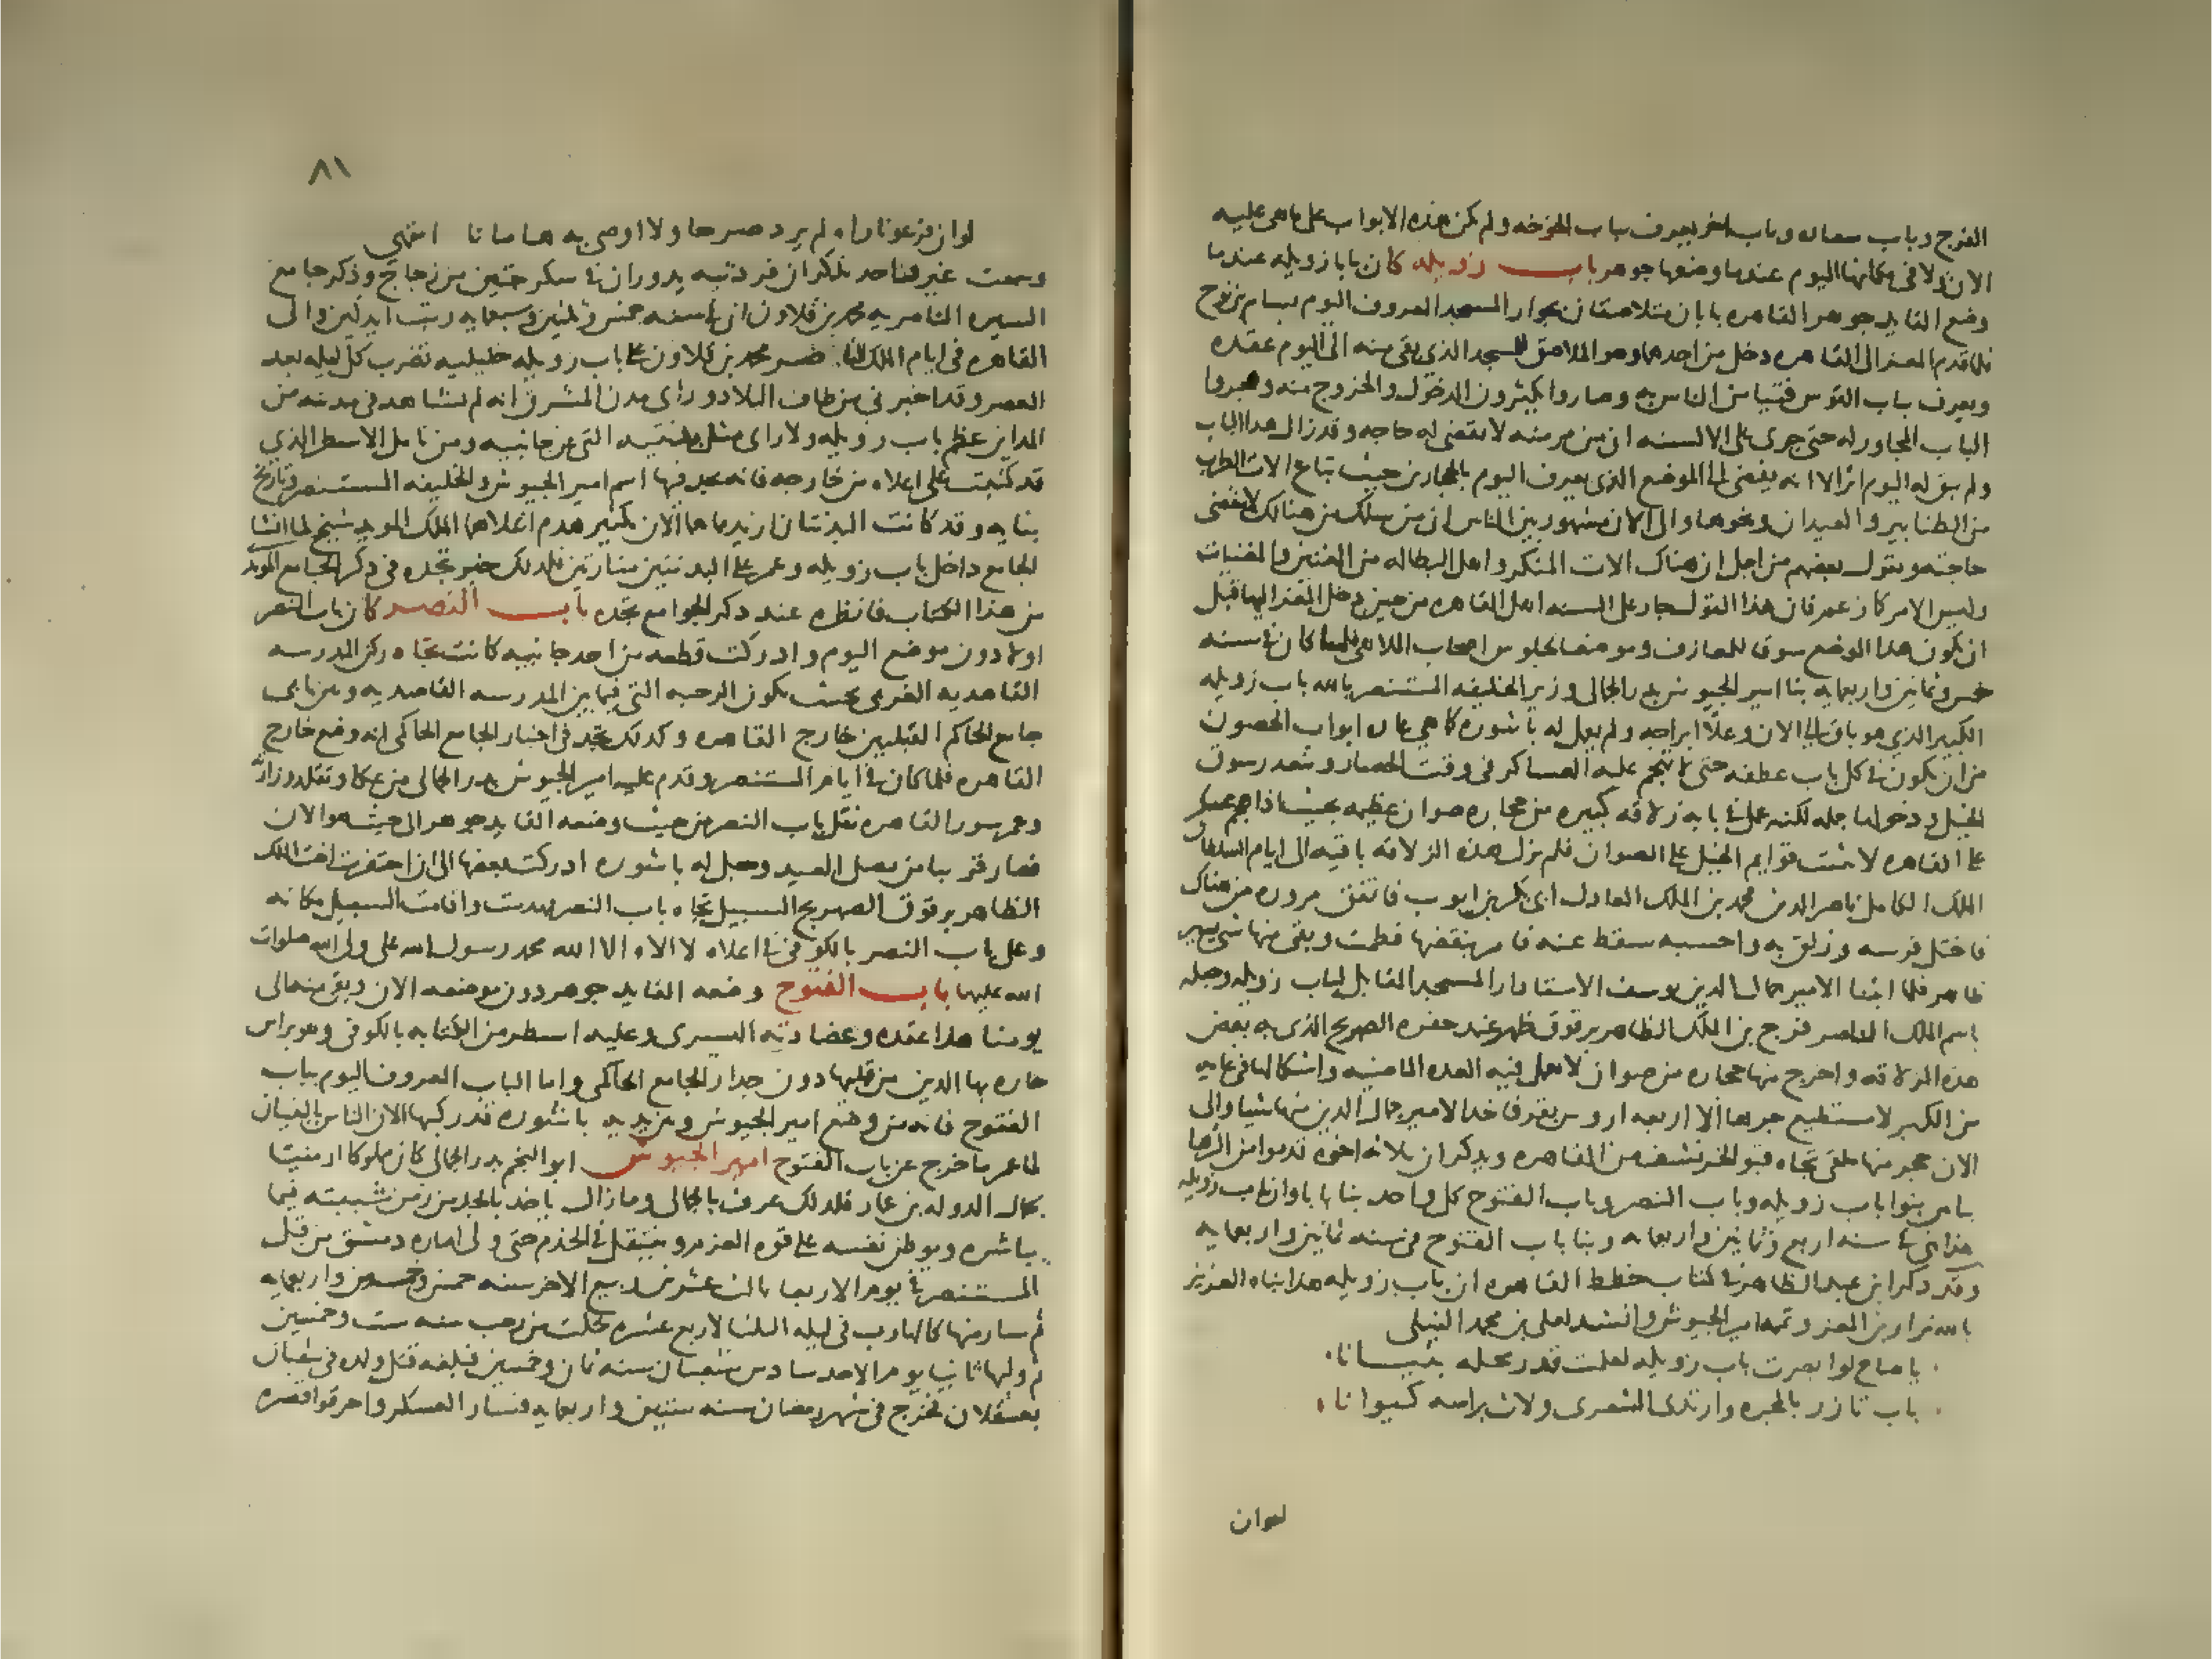 الفرج وباب سعاده وباب اخر يعرف بباب الخوخه ولم تكن هذه الابواب على ما هي عليه
الان ولا في مكانها اليوم عندما وضعها جوهر باب زويله كان بابا زويله عندما
وضع القايد جوهر القاهره بابان متلاصقان بجوار المسجد المعروف اليوم بسام بن نوح
فلما قدم المعز الى القاهره دخل من احدهما وهو الملاصق للمسجد الذي بقي منه الى اليوم عقده
ويعرف باب القوس فتيامن الناس به وصاروا يكثرون الدخول والخروج منه وهجروا
الباب المجاور له حتى جرى على الالسنه ان من مر منه لا تقضى له حاجه وقد زال هدا الباب
ولم يبق له اليوم اثر الا انه يفضى الى الموضع الذي يعرف اليوم بالحجارين حيث تباع الات الطرب
من الطنابير والعيدان ونحوها والى الان مشهور بين الناس ان من سلك من هنالك لا تقضى
حاجته ويقول بعضهم من اجل ان هناك الات المنكر واهل البطاله من المغنين والمغنيات
وليس الامر كما زعم فان هذا القول جار على السنه اهل القاهره من حين دخل المعز اليها قبل
ان يكون هدا الموضع سوقا للمعازف وموضعا لجلوس اصحاب الملاهي فلما كان في سنه
خمس وثمانين واربعمايه بنا امير الجيوش بدر الجمالي وزير الخليفه المستنصر بالله باب زويله
الكبير الذي هو باق الى الان وعلا ابراجه ولم يعمل له باشوره كما هي عاده ابواب الحصون
من ان يكون في كل باب عطفه حتى لا تهجم عليه العساكر في وقت الحصار ويتعدر سوق
الخيل و دخولها جمله لكنه عمل في بابه زلاقه كبيره من حجاره صوان عظيمه بحيث اذا هجم عسكر
على القاهره لا تثبت قوايم الخيل على الصوان فلم تزل هذه الزلاقه باقيه الى ايام السلطان
الملك الكامل ناصر الدين محمد بن الملك العادل ابي بكر بن ايوب فاتفق مروره من هناك
فاختل فرسه وزلق به واحسبه سقط عنه فامر بنقضها فنقضت وبقي منها شي يسير
ظاهر فلما ابتنا الامير جمال الدين يوسف الاستادار المسجد المقابل لباب زويله وجعله
باسم الملك الناصر فرج بن الملك الظاهر برقوق ظهر عند حفره الصهريج الذي به بعض
هذه الزلاقه واخرج منها حجاره من صوان لا تعمل فيه العده الماضيه واشكالها في غايه
من الكبر لا يستطيع جرها الا اربعه اروس بقر فاخد الامير جمال الدين منها شيا والى
الان حجر منها ملقى تجاه قبو الخرنشف من القاهره ويدكر ان ثلاثه اخوه قدموا من الرها
بنوا باب زويله وباب النصر وباب الفتوح كل واحد بنا بابا وان باب زويله
هذا بني في سنه اربع وثمانين واربعمايه وبنا باب الفتوح في سنه ثمانين واربعمايه
وقد دكر ابن عبد الظاهر في كتاب خطط القاهره ان باب زويله هدا بناه العزيز
بالله نزار بن المعز وتممه امير الجيوش وانشد لعلي بن محمد النيلي
يا صاح لو ابصرت باب زويله لعلمت قدر محله بنيانا
باب تازر بالمجره وارتدى الشعرى ولاث براسه كيوانا
لوان
٨١
لوان فرعونا راه لم يرد صرحا ولا اوصى به هامانا انتهى
وسمعت غير واحد يذكر ان فردتيه يدوران في سكرجتين من زجاج وذكر جامع
السيره الناصريه محمد بن قلاون ان في سنه خمس وثلثين وسبعمايه رتب ايدكين والى
القاهره في ايام الملك الناصر محمد بن قلاون على باب زويله خليليه تضرب كل ليله بعد
العصر وقد اخبرني من طاف البلاد وراى مدن المشرق انه لم يشاهد في مدينه من
المداين عظم باب زويله ولا راى مثل بدنتيه التي عن جانبيه ومن تامل الاسطر الذي
قد كتبت على اعلاه من خارجه فانه يجد فيها اسم امير الجيوش والخليفه المستنصر وتاريخ
بنايه وقد كانت البدنتان ازيد مما هما الان بكثير هدم اعلاهما الملك المويد شيخ لما انشا
الجامع داخل باب زويله وعمر على البدنتين منارتين فلدلك خبر تجده في دكر الجامع المويد
من هذا الكتاب فانظره عند دكر الجوامع تجده باب النصر كان باب النصر
اولا دون موضع اليوم وادركت قطعه من احد جانبيه كانت تجاه ركن المدرسه
القاصديه الغربي بحيث تكون الرحبه التي فيما بين المدرسه القاصديه وبين بابي
جامع الحاكم القبليين خارج القاهره وكدلك تجد في اخبار الجامع الحاكمي انه وضع خارج
القاهره فلما كان في ايام المستنصر وقدم عليه امير الجيوش بدر الجمالي من عكا وتقلد وزارته
وعمر سور القاهره نقل باب النصر من حيث وضعه القايد جوهر الى حيث هو الان
فصار قريبا من مصلى العيد وجعل له باشوره ادركت بعضها الى ان احتفرت اخت الملك
الظاهر برقوق الصهريج السبيل تجاه باب النصر فهدمت واقامت السبيل مكانه
وعلى باب النصر بالكوفي في اعلاه لا الاه الا الله محمد رسول الله علي ولي الله صلوات
الله عليهما باب الفتوح وضعه القايد جوهر دون موضعه الان وبقي منه الى
يومنا هدا عقده وعضادته اليسرى وعليه اسطر من الكتابه بالكوفي وهو براس
حاره بها الدين من قبليها دون جدار الجامع الحاكمي واما الباب المعروف اليوم بباب
الفتوح فانه من وضع امير الجيوش وبين يديه باشوره قد ركبها الان الناس بالبنيان
لما عمر ما خرج عن باب الفتوح امير الجيوش ابو النجم بدر الجمالي كان مملوكا ارمنيا
لجمال الدوله بن عمار فلدلك عرف بالجمالي وما زال ياخد بالجد من زمن شبيبته فيما
يباشره ويوطن نفسه على قوه العزم وينتقل في الخدم حتى ولى اماره دمشق من قبل
المستنصر في يوم الاربعا ثالث عشرى ربيع الاخر سنه خمس وخمسين واربعمايه
ثم سار منها كالهارب في ليله الثلثا لاربع عشره خلت من رجب سنه ست وخمسين
ثم وليها ثانيا يوم الاحد سادس شعبان سنه ثمان وخمسين فبلغه قتل ولده في شعبان
بعسقلان فخرج في شهر رمضان سنه ستين واربعمايه فسار العسكر واحرقوا قصره